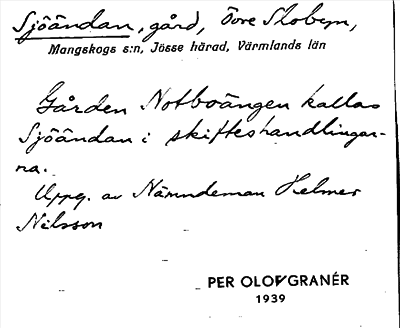 Sjöändan, gård, Övre Slobyn,
Mangskogs s:n, Jösse härad, Värmlands län
Gården Notboängen kallas
Sjöändan i skifteshandlingar-
na.
Uppg. av Nämndeman Helmer
Nilsson
PER OLOF GRANÉR
1939